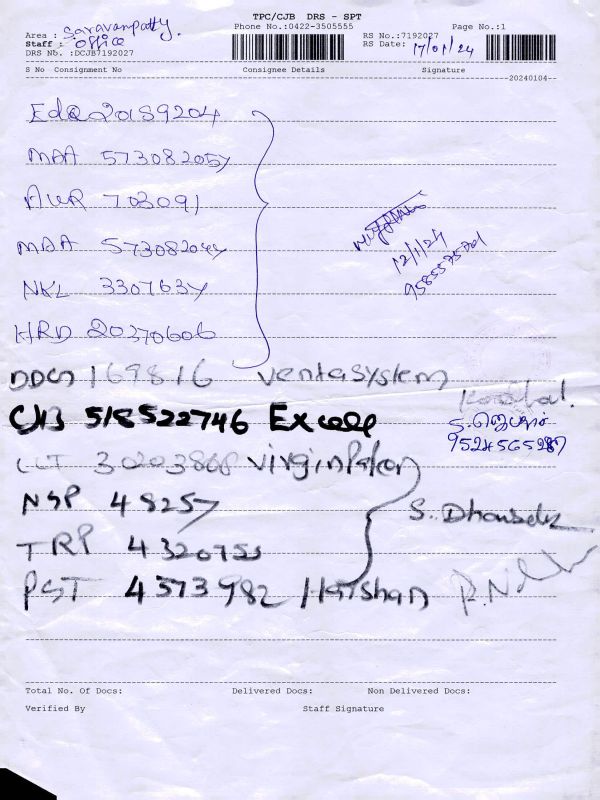 TPC/CJB DRS - SPT
Area : Saravanpatty. Phone No.:0422-3505555 RS No.:7192027 Page No.:1
Staff : office RS Date: 17/01/24
DRS No. :DCJB7192027
S No Consignment No Consignee Details Signature
20240104
20189204
MAA 573082054
AWR 703091
MAA 573082044
12/1/24
NKL 3307634
9585575701
HRD 20370606
169816 Ventasystem
CJB 518522746 Excel
9524565287
NSP 48257
S. Dhanasekar
TRP 4320755
PST 4573982 Harshan
Total No. Of Docs: Delivered Docs: Non Delivered Docs:
Verified By Staff Signature